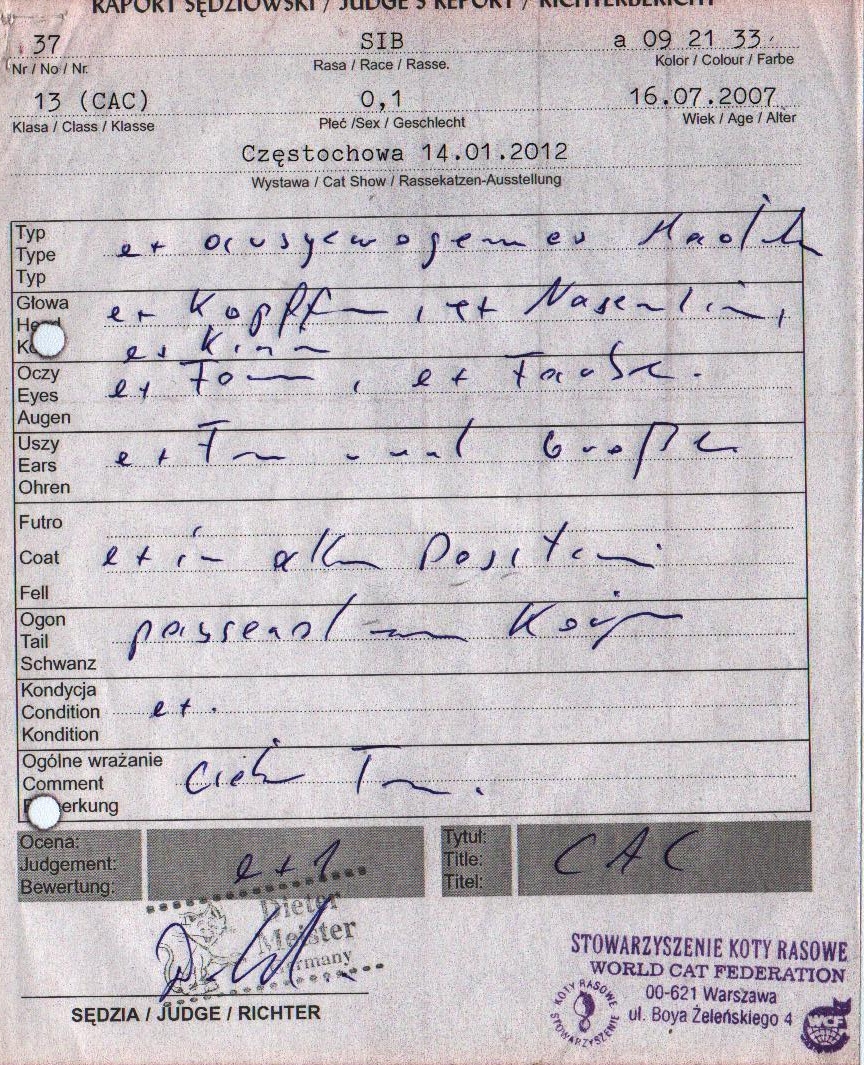 RAPORT SĘDZIOWSKI / JUDGE'S REPORT / RICHTERBERICHT
37 SIB a 09 21 33
Nr / No / Nr. Rasa / Race / Rasse. Kolor / Colour / Farbe
13 (CAC) 0,1 16.07.2007
Klasa / Class / Klasse Płeć /Sex / Geschlecht Wiek / Age / Alter
Częstochowa 14.01.2012
Wystawa / Cat Show / Rassekatzen-Ausstellung
Typ
Type ex ausgewogenes
Typ
Głowa ex Kopfform, ex Nasenlinie,
Head
ex Kinn
Oczy
Eyes ex Form, ex Farbe.
Augen
Uszy
Ears ex Form und Größe
Ohren
Futro
Coat ex in allen
Fell
Ogon
Tail passend zum Körper
Schwanz
Kondycja
Condition ex.
Kondition
Ogólne wrażanie
Comment
Bemerkung
Ocena:
Judgement: ex 1
Bewertung:
Tytuł:
Title: CAC
Titel:
Dieter
Meister
Germany
SĘDZIA / JUDGE / RICHTER
STOWARZYSZENIE KOTY RASOWE
WORLD CAT FEDERATION
00-621 Warszawa
ul. Boya Żeleńskiego 4
KOTY RASOWE
STOWARZYSZENIE
WCF